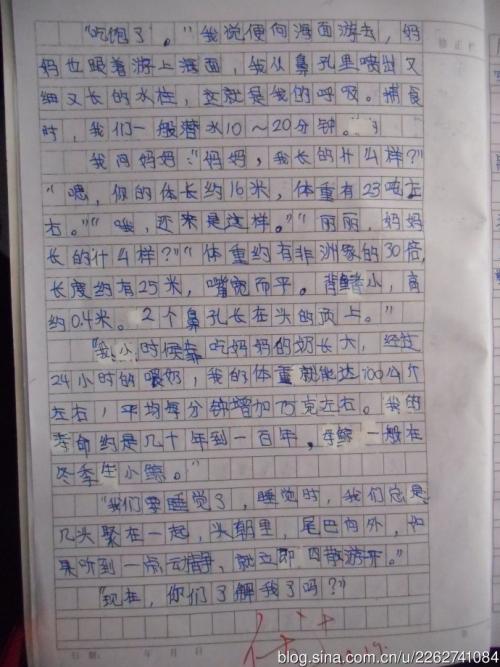 "吃饱了。"我说便向海面游去,妈
妈也跟着游上海面,我从鼻孔里喷出又
细又长的水柱,这就是我的呼吸。捕食
时,我们一般潜水10～20分钟。
我问妈妈:"妈妈,我长的什么样?"
"嗯,你的体长约16米,体重有23吨左
右。""哦,还来是这样。""丽丽,妈妈
长的什么样?""体重约有非洲象的30倍,
长度约有25米,嘴宽而平。背鳍小,高
约0.4米。2个鼻孔长在头的顶上。"
"我小时候靠吃妈妈的奶长大,经过
24小时的喂奶,我的体重就能达100公斤
左右,平均每分钟增加75克左右。我的
寿命约是几十年到一百年,母鲸一般在
冬季生小鲸。"
"我们要睡觉了,睡觉时,我们总是
几头聚在一起,头朝里,尾巴向外,如
果听到一点云精争,就立即四散游开。"
"现在,你们了解我了吗?"
日期: 年 月 日
blog.sina.com.cn/u/2262741084